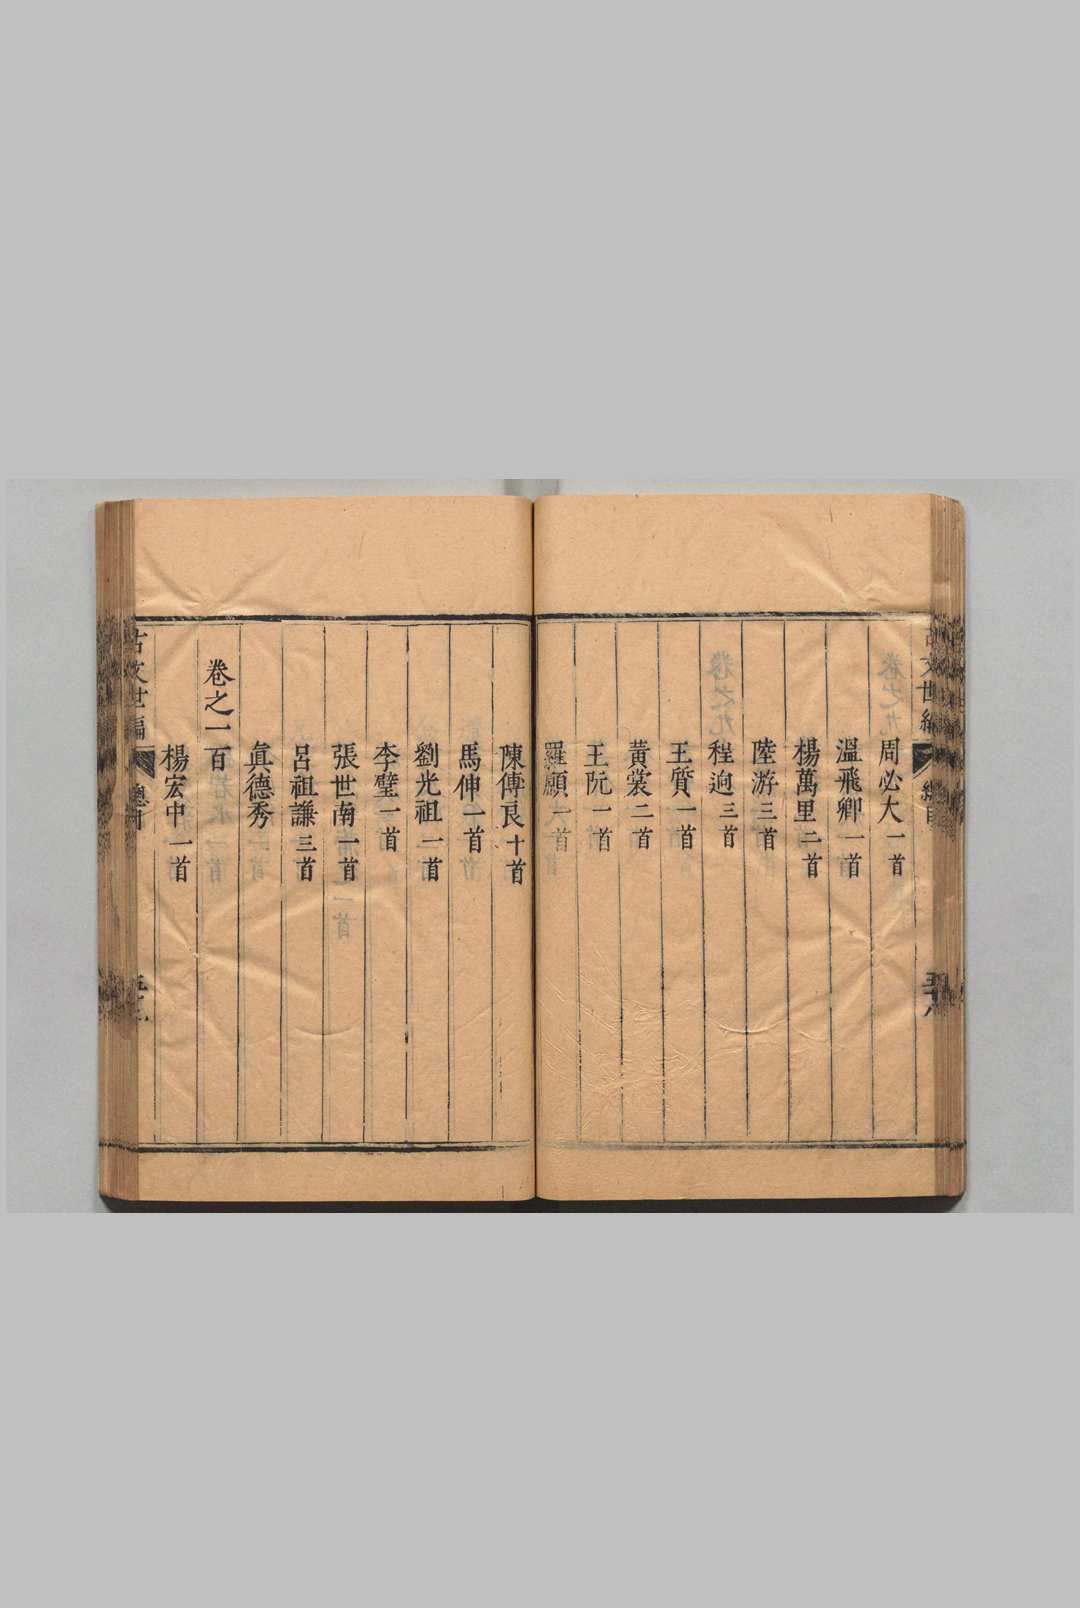 周必大一首
溫飛卿一首
楊萬里二首
陸游三首
程逈三首
王質一首
黃裳二首
王阮一首
羅願一首
陳傅良十首
馬伸一首
劉光祖一首
李璧一首
張世南一首
呂祖謙三首
眞德秀
卷之一百
楊宏中一首
古文世編
總目
古文世編
總目